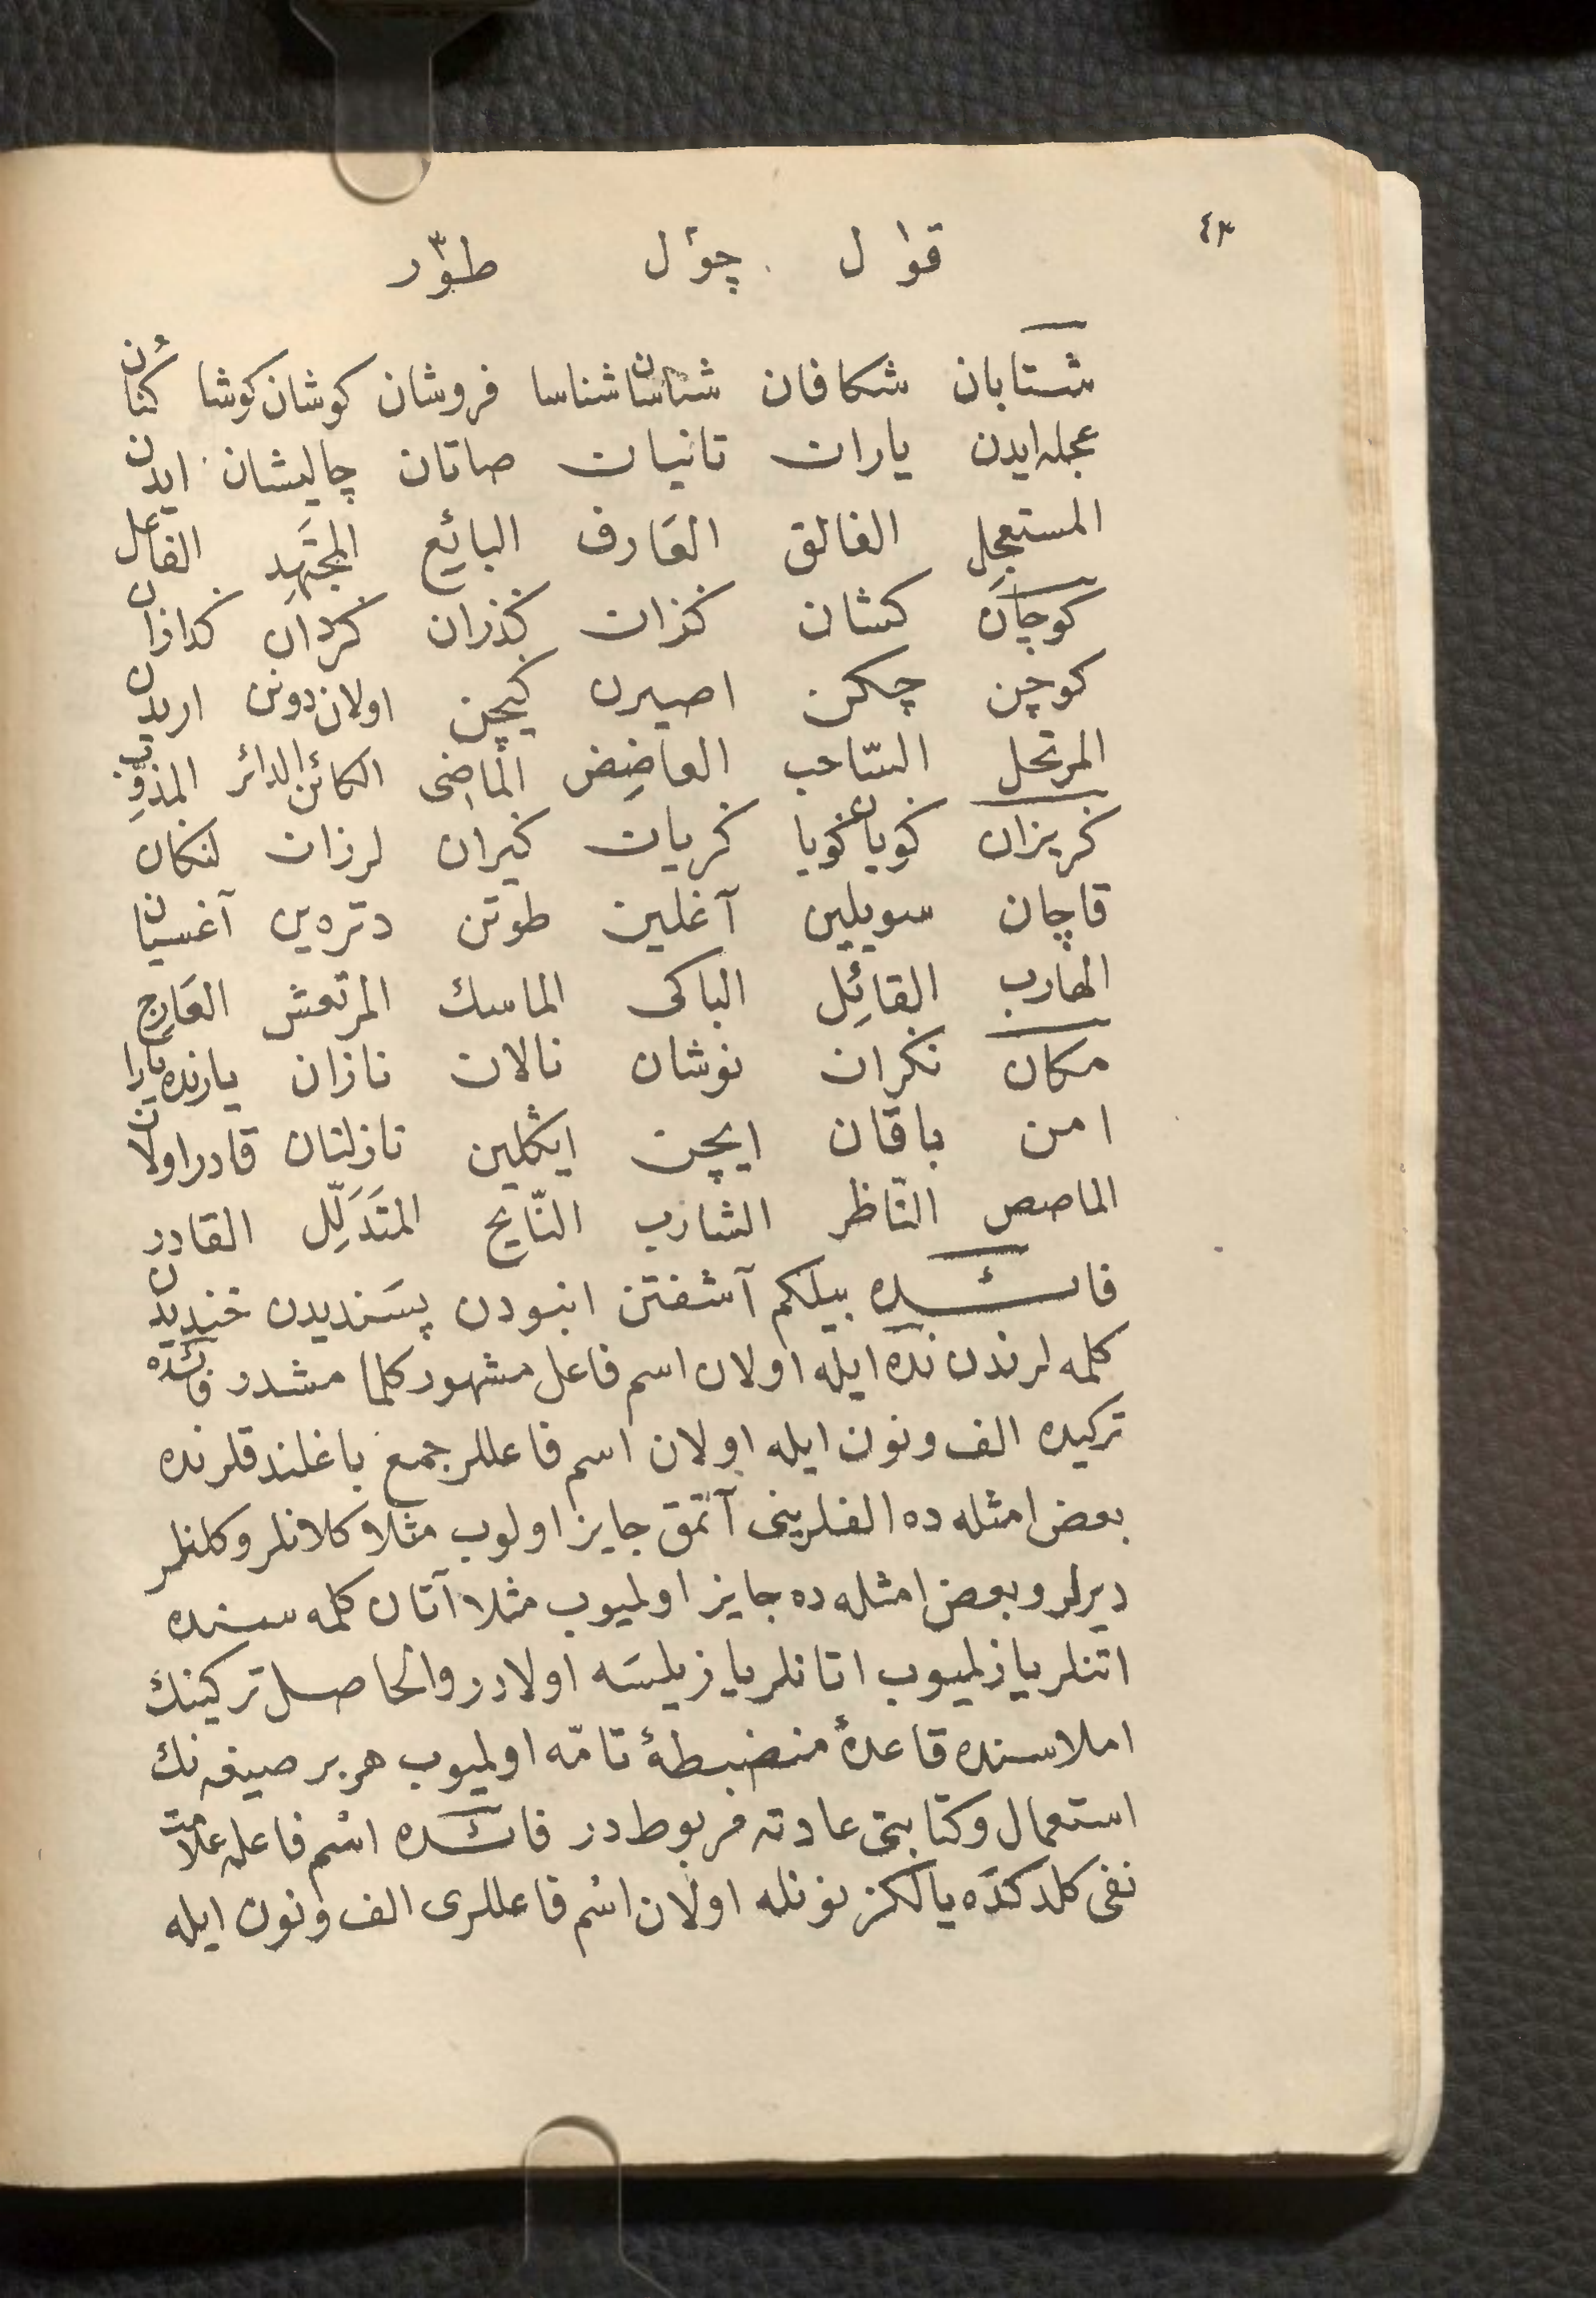 ٤٣
قوٰل چوٴل طوّر
شتابان شكافان شناسان شناسا فروشان كوشان كوشا كنان
عجله ايدن ياران تانيان صاتان چاليشان ايدن
المستعجل الفالق العَارف البائِع المجتَهِد الفاعل
كوچان كشان كزان كذران كردان كدازان
كوچن چكن اصيرن كيچن اولان دونن اريدن
المرتحل السّاحب العاضِض الماضِى الكائن الدائر المذوِّب
كريزان كويان كويا كريان كيران لرزان لنكان
قاچان سويلين آغلين طوتن دتره ين آغسيان
الهارب القائِل الباكى الماسك المرتعش العَارِج
مكان نكران نوشان نالان نازان يارنده يارا
امن باقان ايچن ايڭلين نازلنان قادر اولان
الماصص النّاظر الشارب النّايح المتَدَلِّل القادر
فائده بيلكم آشفتن انبودن پسَنديدن خنديدن
كلمه لرندن نده ايله اولان اسم فاعل مشهور كلما مشدر فائده
تركيده الف ونون ايله اولان اسم فاعللر جمع باغلندقلرنده
بعض امثله ده الفلرينى آتمق جايز اولوب مثلا كلانلر وكلنلر
ديرلر وبعض امثله ده جايز اولميوب مثلا آتان كلمه سنده
اتنلر يازلميوب اتانلر يازيلسَه اولادر والحاصل تركينك
املاسنده قاعدهٔ منضبطهٔ تامّه اولميوب هر بر صيغه نك
استعمال وكتابتى عادته مربوطدر فائده اسْم فاعله علامت
نفى كلدكدَه يالكز نونله اولان اسْم فاعللرى الف ونون ايله